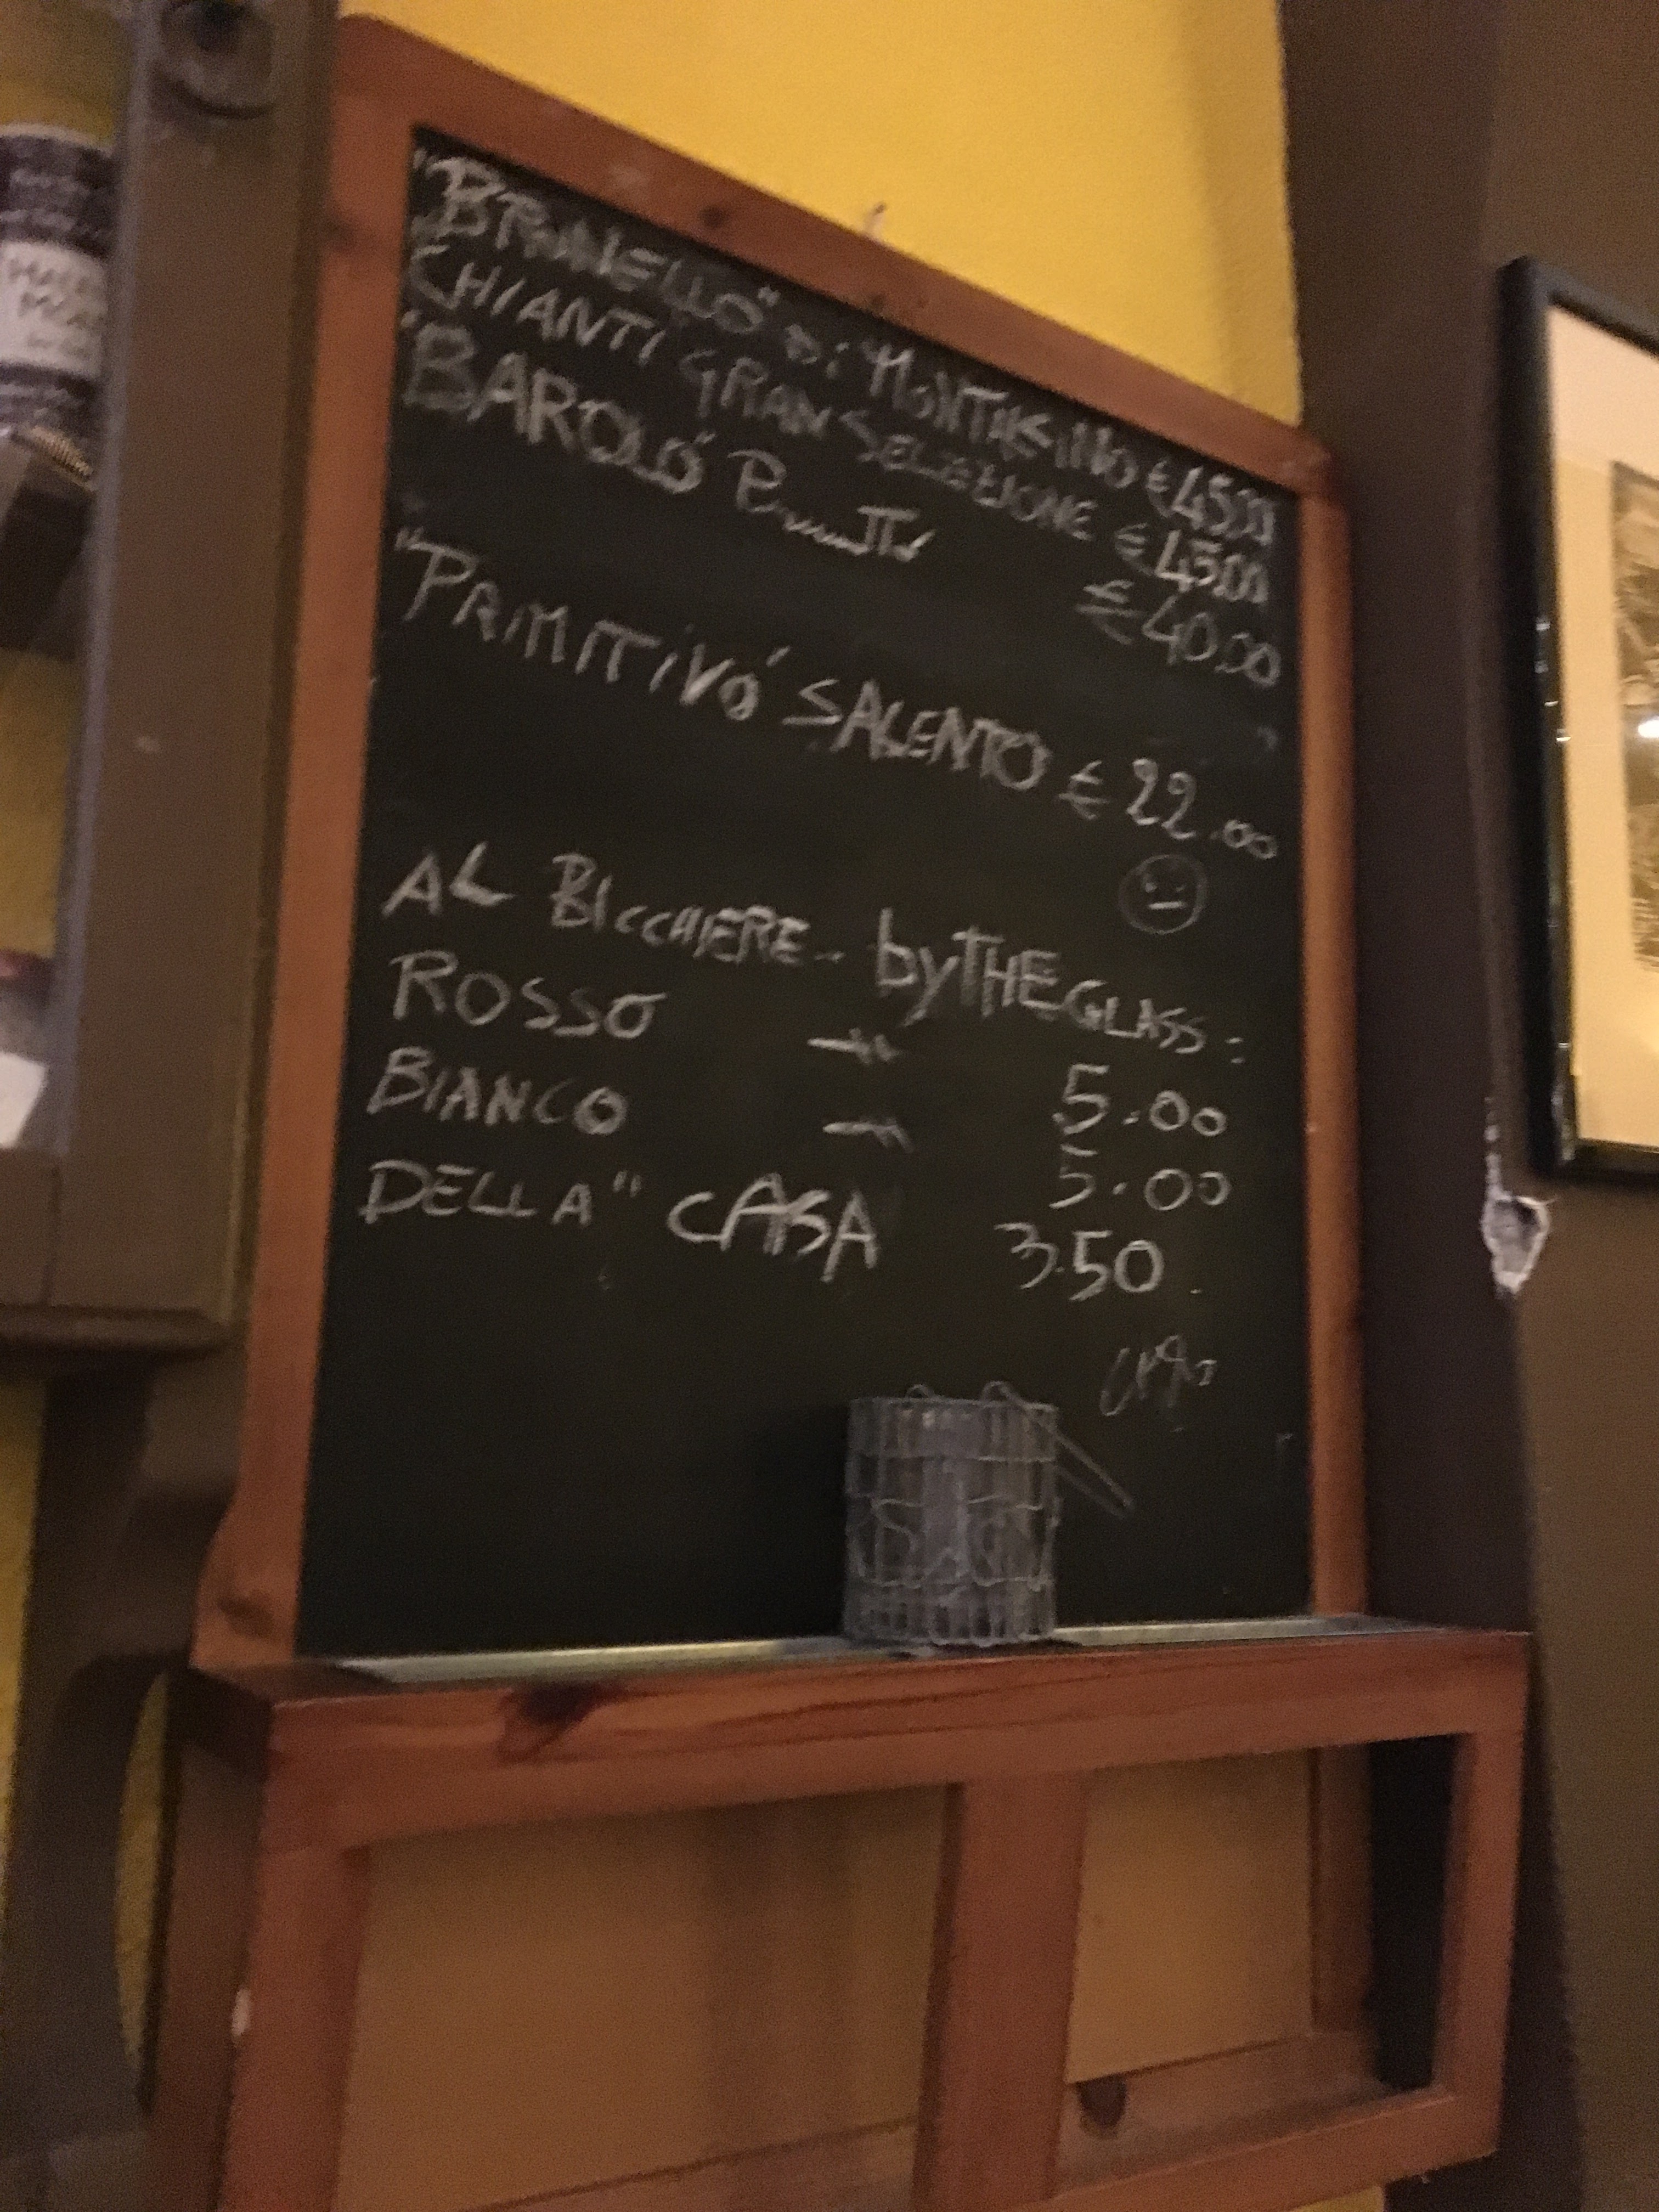 "BRUNELLO" Di "MONTALCINO € 45.00
CHIANTI GRAN SELEZIONE € 45.00
"BAROLO" Prunotto € 40.00
"PRIMITIVO" SALENTO € 22.00
AL BICCHIERE - by THE GLASS:
ROSSO 5.00
BIANCO 5.00
DELLA" CASA 3.50